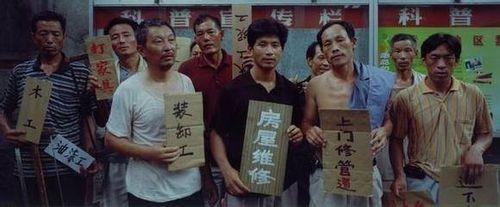 科普宣传栏
科普
打家具
木工
油漆工
装卸工
房屋维修
上门修管道